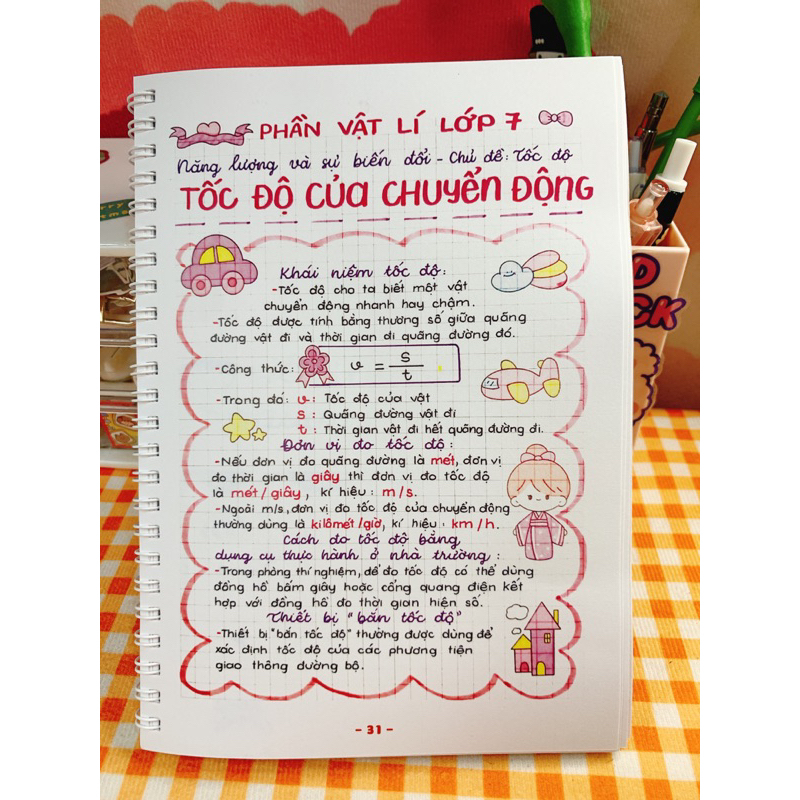 PHẦN VẬT LÍ LỚP 7
Năng lượng và sự biến đổi - Chủ đề: Tốc độ
TỐC ĐỘ CỦA CHUYỂN ĐỘNG
Khái niệm tốc độ:
-Tốc độ cho ta biết một vật
chuyển động nhanh hay chậm.
-Tốc độ được tính bằng thương số giữa quãng
đường vật đi và thời gian đi quãng đường đó.
-Công thức: v = s/t
-Trong đó: v: Tốc độ của vật
s: Quãng đường vật đi
t: Thời gian vật đi hết quãng đường đi.
Đơn vị đo tốc độ:
-Nếu đơn vị đo quãng đường là mét, đơn vị
đo thời gian là giây thì đơn vị đo tốc độ
là mét/giây, kí hiệu: m/s.
-Ngoài m/s, đơn vị đo tốc độ của chuyển động
thường dùng là kilômét/giờ, kí hiệu: km/h.
Cách đo tốc độ bằng
dụng cụ thực hành ở nhà trường:
-Trong phòng thí nghiệm, để đo tốc độ có thể dùng
đồng hồ bấm giây hoặc cổng quang điện kết
hợp với đồng hồ đo thời gian hiện số.
Thiết bị "bắn tốc độ"
-Thiết bị "bắn tốc độ" thường được dùng để
xác định tốc độ của các phương tiện
giao thông đường bộ.
- 31 -